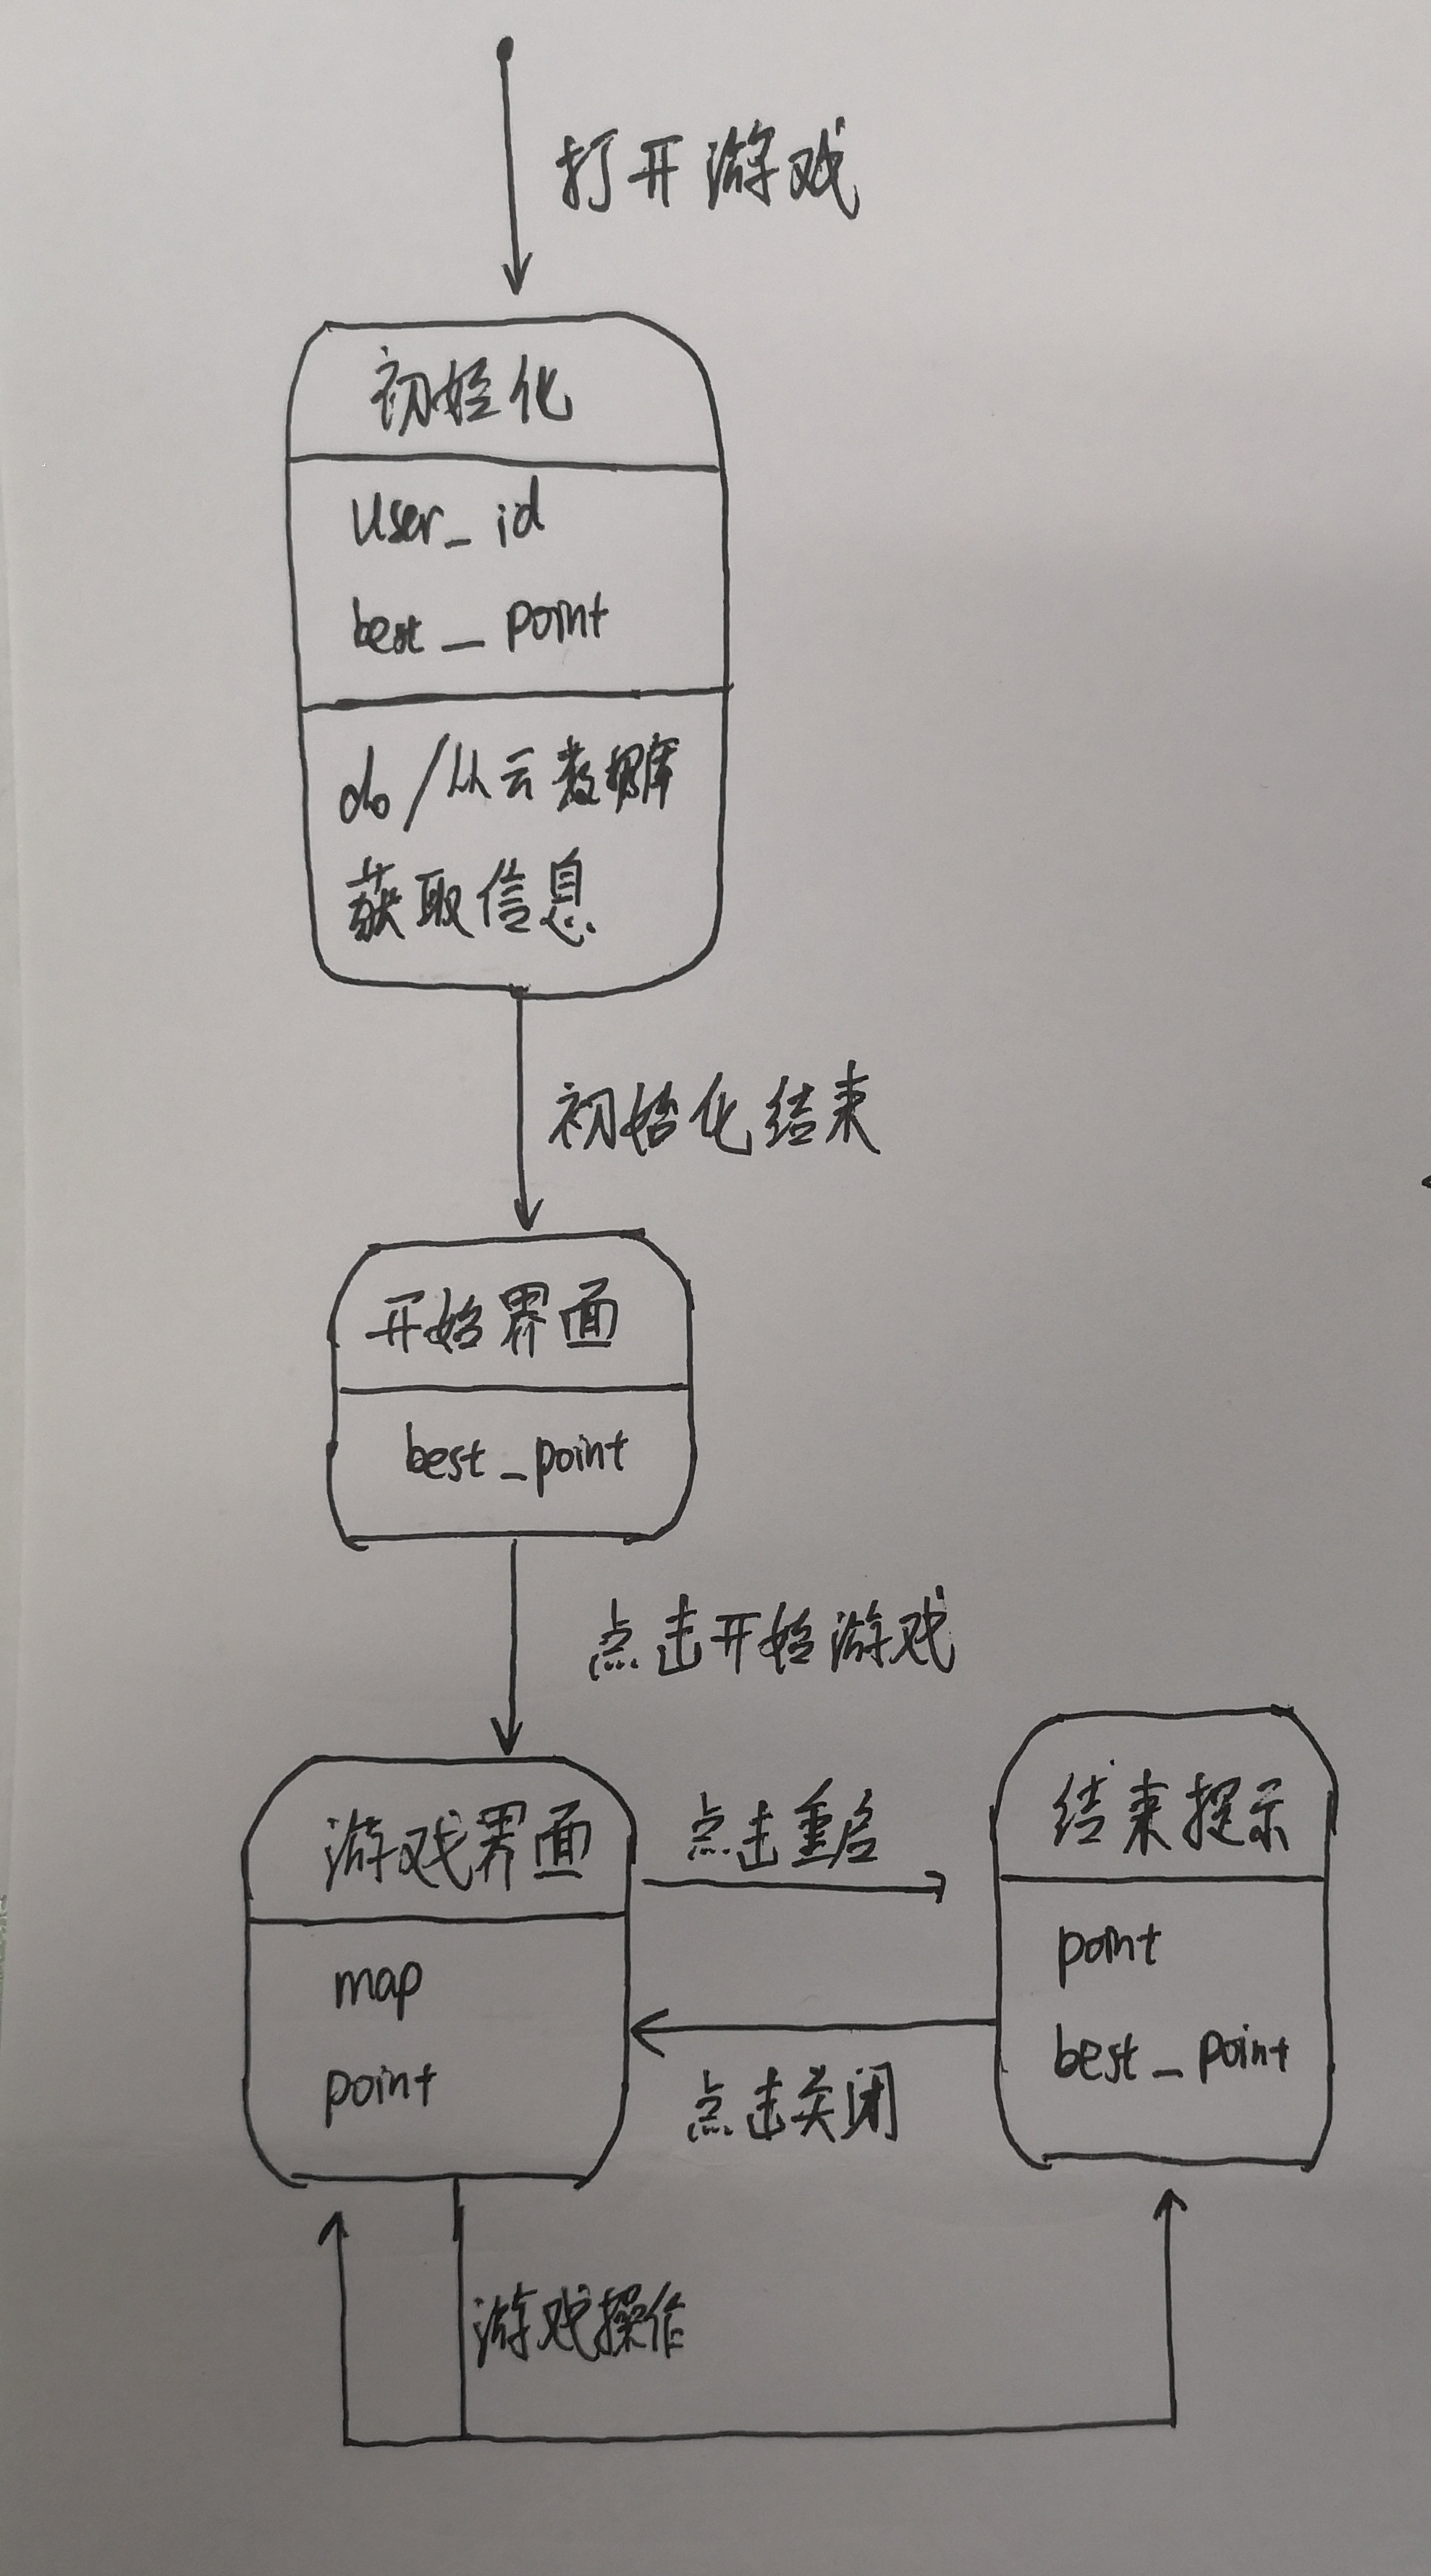 打开游戏
初始化
user_id
best_point
do/从云数据库
获取信息
初始化结束
开始界面
best_point
点击开始游戏
游戏界面
map
point
点击重启
点击关闭
结束提示
point
best_point
游戏操作